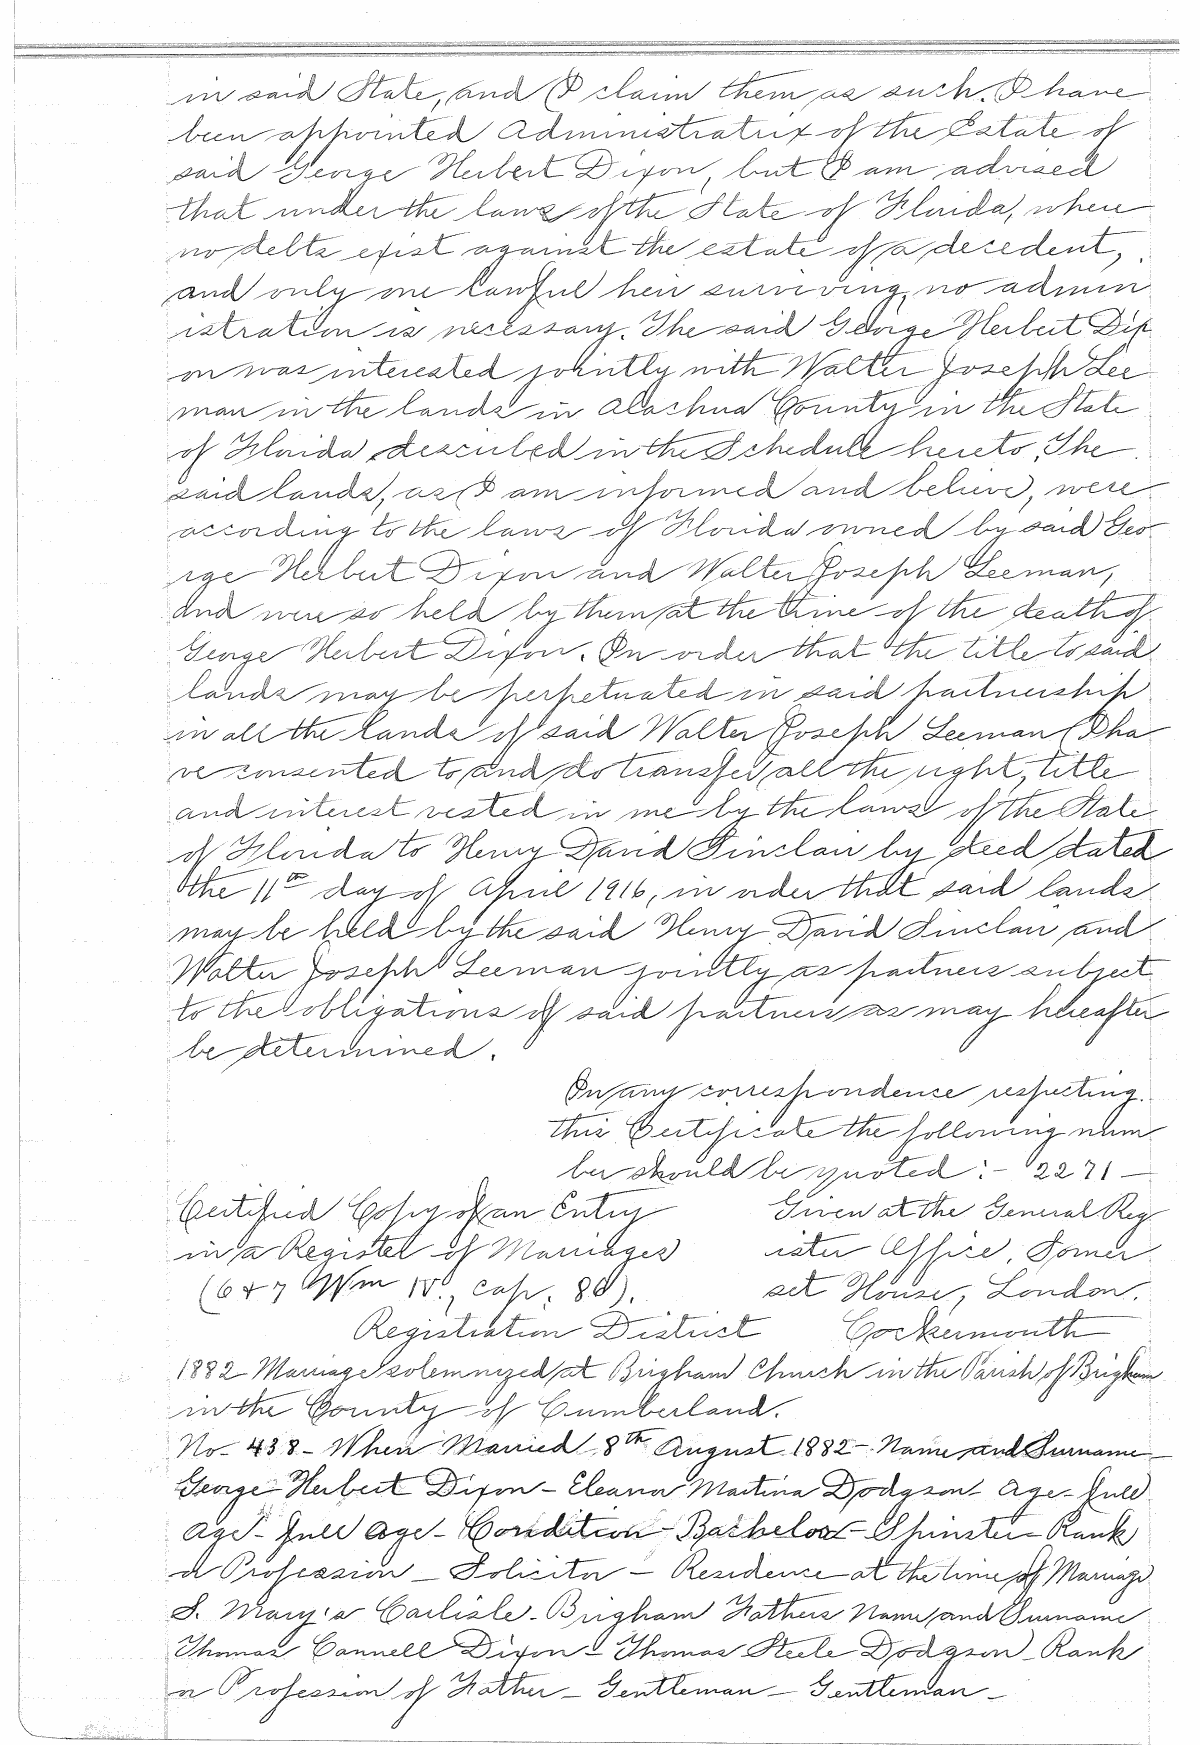 in said State, and I claim them as such. I have
been appointed Administratrix of the Estate of
said George Herbert Dixon, but I am advised
that under the laws of the State of Florida, where
no debts exist against the estate of a decedent,
and only one lawful heir surviving, no admin
istration is necessary. The said George Herbert Dix
on was interested jointly with Walter Joseph Lee
man in the lands in Alachua County in the State
of Florida described in the Schedule hereto. The
said lands, as I am informed and believe, were
according to the laws of Florida owned by said Geo
rge Herbert Dixon and Walter Joseph Leeman,
and were so held by them at the time of the death of
George Herbert Dixon. In order that the title to said
lands may be perpetuated in said partnership
in all the lands of said Walter Joseph Leeman I ha
ve consented to and do transfer all the right, title
and interest vested in me by the laws of the State
of Florida to Henry David Sinclair by deed dated
the 11th day of April 1916, in order that said lands
may be held by the said Henry David Sinclair and
Walter Joseph Leeman jointly as partners subject
to the obligations of said partners as may hereafter
be determined.
In any correspondence respecting
this Certificate the following num
ber should be quoted:- 2271-
Certified Copy of an Entry Given at the General Reg
in a Register of Marriages ister Office, Somer
(6 & 7 Wm IV., cap. 86). set House, London.
Registration District Cockermouth
1882 Marriage solemnized at Brigham Church in the Parish of Brigham
in the County of Cumberland.
No- 438- When Married 8th August 1882- Name and Surname-
George Herbert Dixon- Eleanor Martina Dodgson- Age- full
age- full age- Condition- Bachelor- Spinster- Rank
or Profession- Solicitor- Residence at the time of Marriage
S. Mary's Carlisle- Brigham Fathers Name and Surname
Thomas Cannell Dixon- Thomas Steele Dodgson- Rank
or Profession of Father- Gentleman- Gentleman-